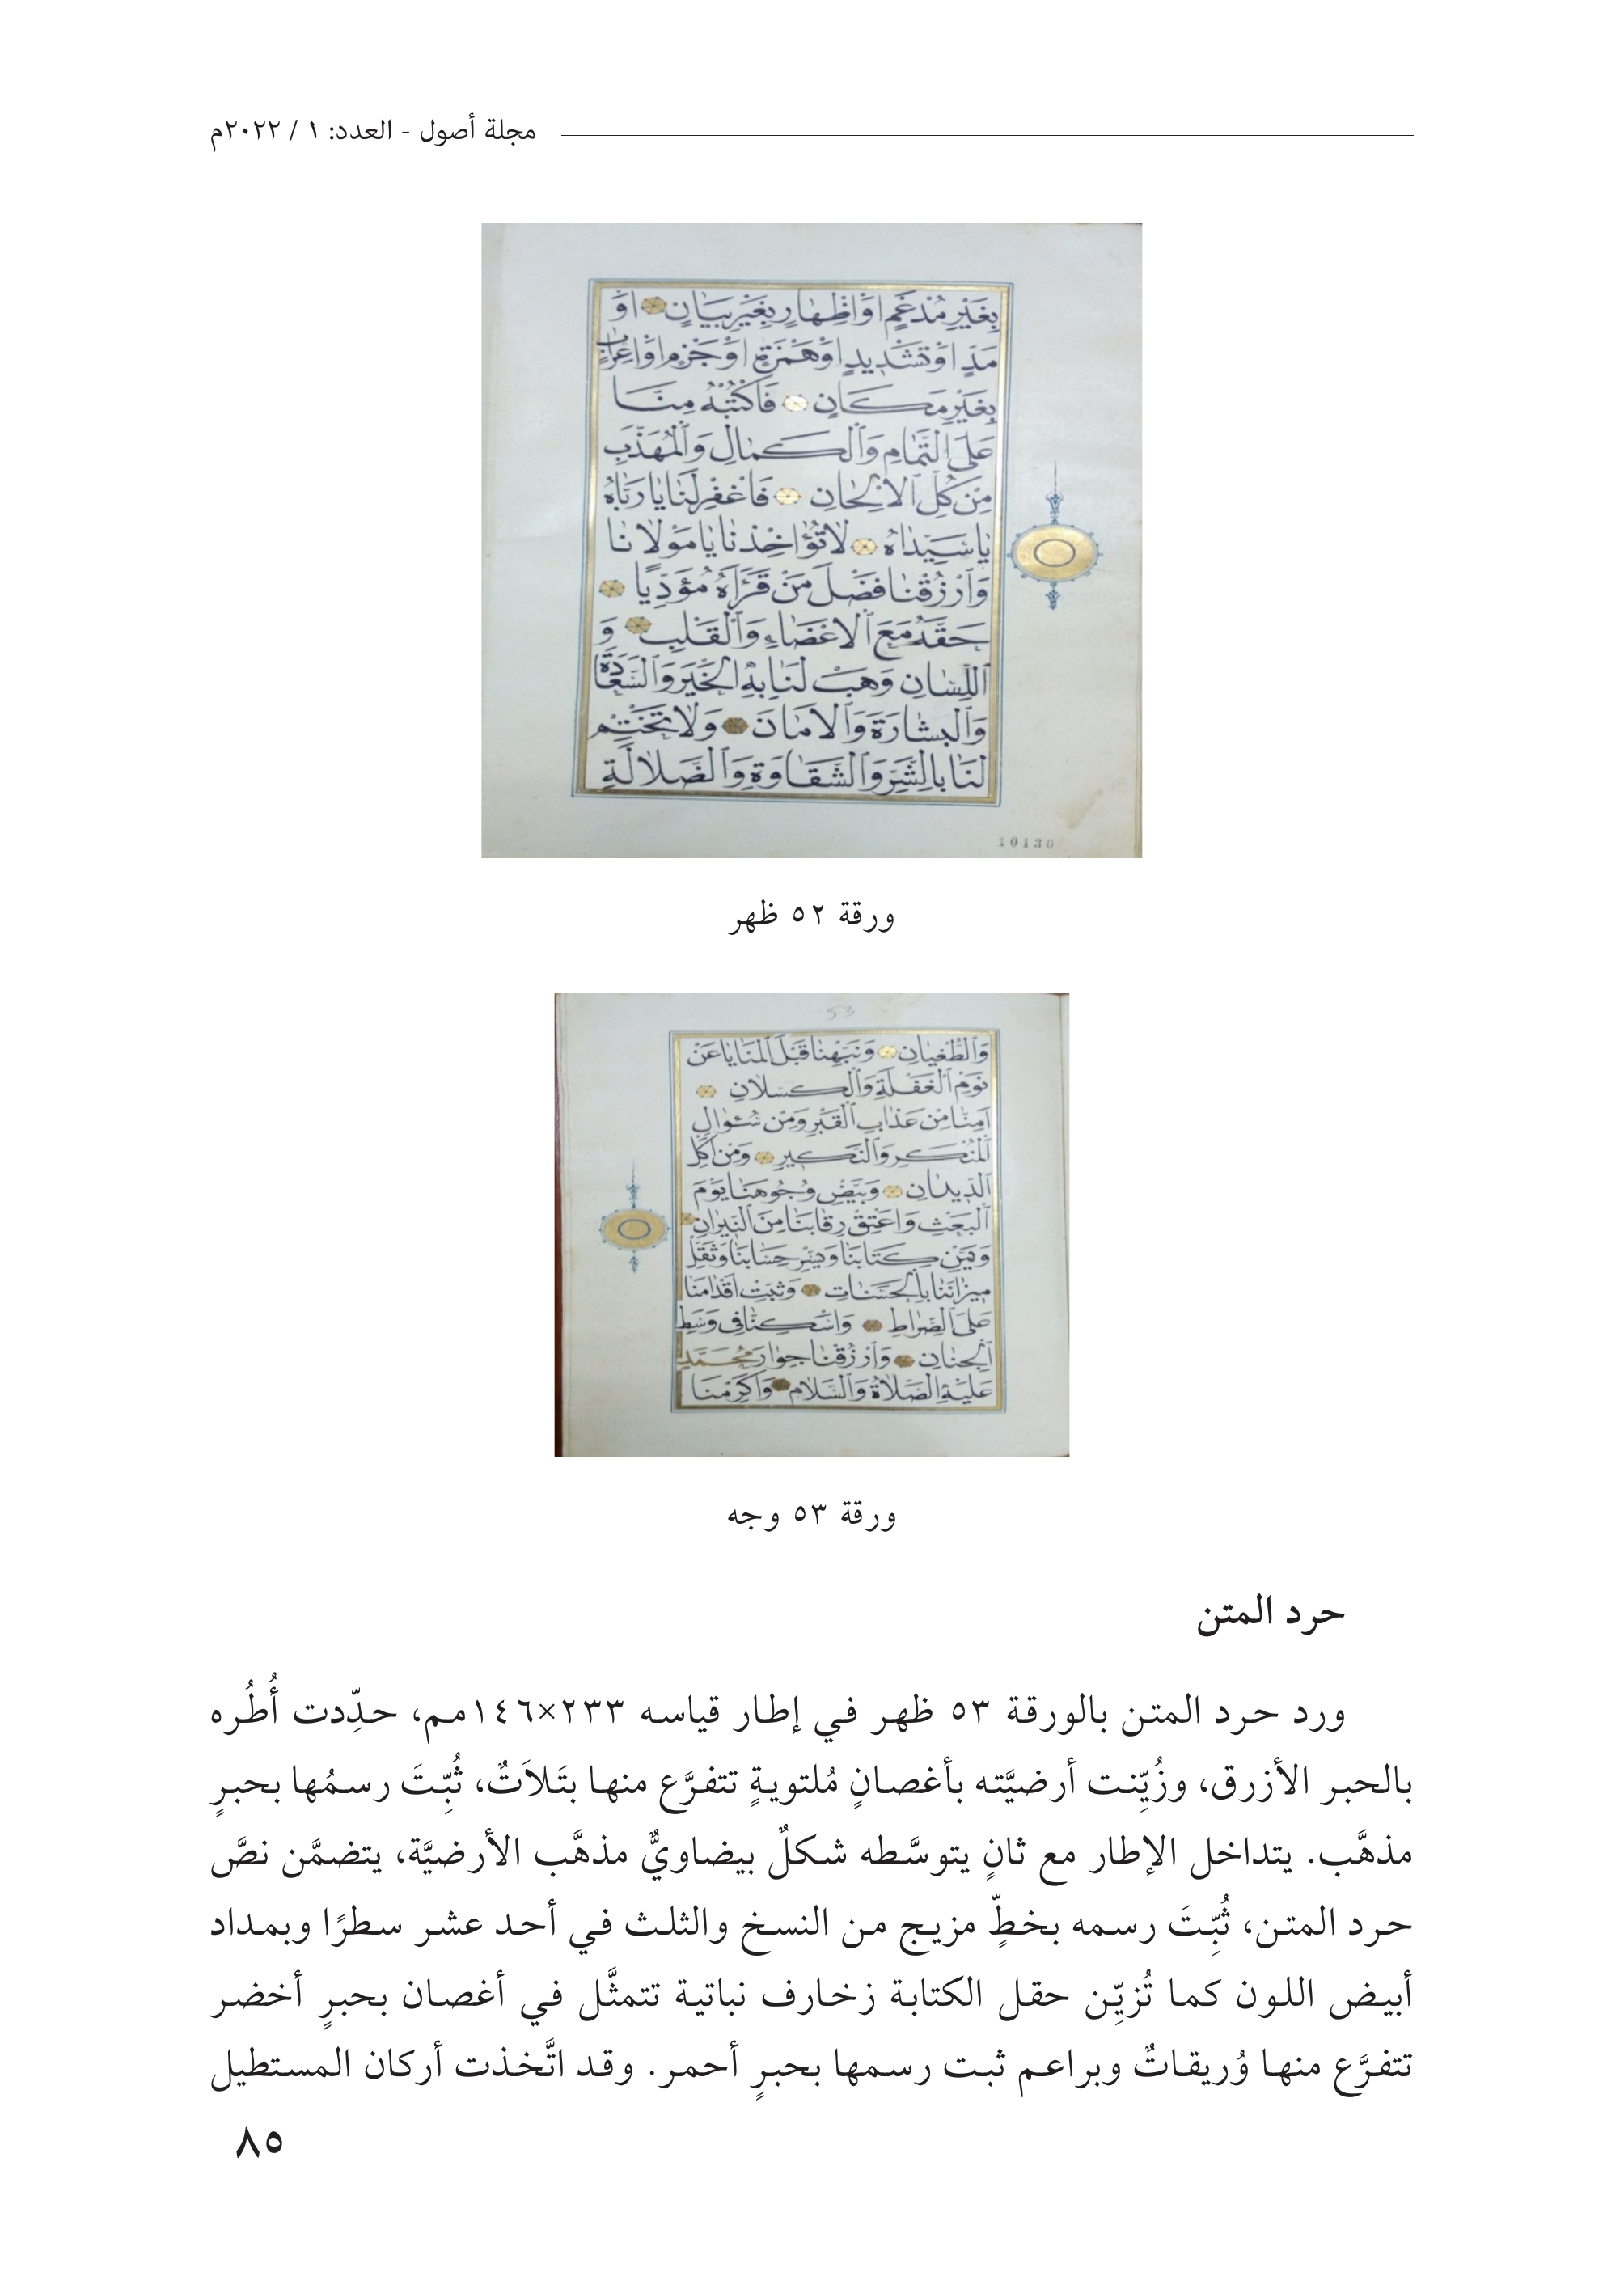 مجلة أصول - العدد: ١ / ٢٠٢٢م
بِغَيْرِ مُدْغَمٍ اَوْ اِظْهَارٍ بِغَيْرِ بَيَانٍ اَوْ
مَدٍّ اَوْ تَشْدِيدٍ اَوْ هَمْزَةٍ اَوْ جَزْمٍ اَوْ اِعْرَابٍ
بِغَيْرِ مَكَانٍ فَاكْتُبْهُ مِنَّا
عَلَى التَّمَامِ وَالْكَمَالِ وَالْمُهَذَّبِ
مِنْ كُلِّ الْاَلْحَانِ فَاغْفِرْ لَنَا يَا رَبَّاهُ
يَا سَيِّدَاهُ لَا تُؤَاخِذْنَا يَا مَوْلَانَا
وَارْزُقْنَا فَضْلَ مَنْ قَرَاَهُ مُؤَدِّيًا
حَقَّهُ مَعَ الْاَعْضَاءِ وَالْقَلْبِ وَ
اللِّسَانِ وَهَبْ لَنَا بِهِ الْخَيْرَ وَالسَّعَادَةَ
وَالْبِشَارَةَ وَالْاَمَانَ وَلَا تَخْتِمْ
لَنَا بِالشَّرِّ وَالشَّقَاوَةِ وَالضَّلَالَةِ
10130
ورقة ٥٢ ظهر
53
وَالطُّغْيَانِ وَنَبِّهْنَا قَبْلَ الْمَنَايَا عَنْ
نَوْمِ الْغَفْلَةِ وَالْكَسْلَانِ
اٰمِنَّا مِنْ عَذَابِ الْقَبْرِ وَمِنْ سُئَوالِ
الْمُنْكَرِ وَالنَّكِيرِ وَمِنْ اَكْلِ
الدِّيدَانِ وَبَيِّضْ وُجُوهَنَا يَوْمَ
الْبَعْثِ وَاَعْتِقْ رِقَابَنَا مِنَ النِّيرَانِ
وَيَمِّنْ كِتَابَنَا وَيَسِّرْ حِسَابَنَا وَثَقِّلْ
مِيزَانَنَا بِالْحَسَنَاتِ وَثَبِّتْ اَقْدَامَنَا
عَلَى الصِّرَاطِ وَاَسْكِنَّا فِى وَسَطِ
الْجِنَانِ وَارْزُقْنَا جِوَارَ مُحَمَّدٍ
عَلَيْهِ الصَّلَاةُ وَالسَّلَام وَاَكْرِمْنَا
ورقة ٥٣ وجه
حرد المتن
ورد حرد المتن بالورقة ٥٣ ظهر في إطار قياسه ٢٣٣×١٤٦مم، حدِّدت أُطُره
بالحبر الأزرق، وزُيِّنت أرضيَّته بأغصانٍ مُلتويةٍ تتفرَّع منها بتَلاَتٌ، ثُبِّتَ رسمُها بحبرٍ
مذهَّب. يتداخل الإطار مع ثانٍ يتوسَّطه شكلٌ بيضاويٌّ مذهَّب الأرضيَّة، يتضمَّن نصَّ
حرد المتن، ثُبِّتَ رسمه بخطٍّ مزيج من النسخ والثلث في أحد عشر سطرًا وبمداد
أبيض اللون كما تُزيِّن حقل الكتابة زخارف نباتية تتمثَّل في أغصان بحبرٍ أخضر
تتفرَّع منها وُريقاتٌ وبراعم ثبت رسمها بحبرٍ أحمر. وقد اتَّخذت أركان المستطيل
٨٥